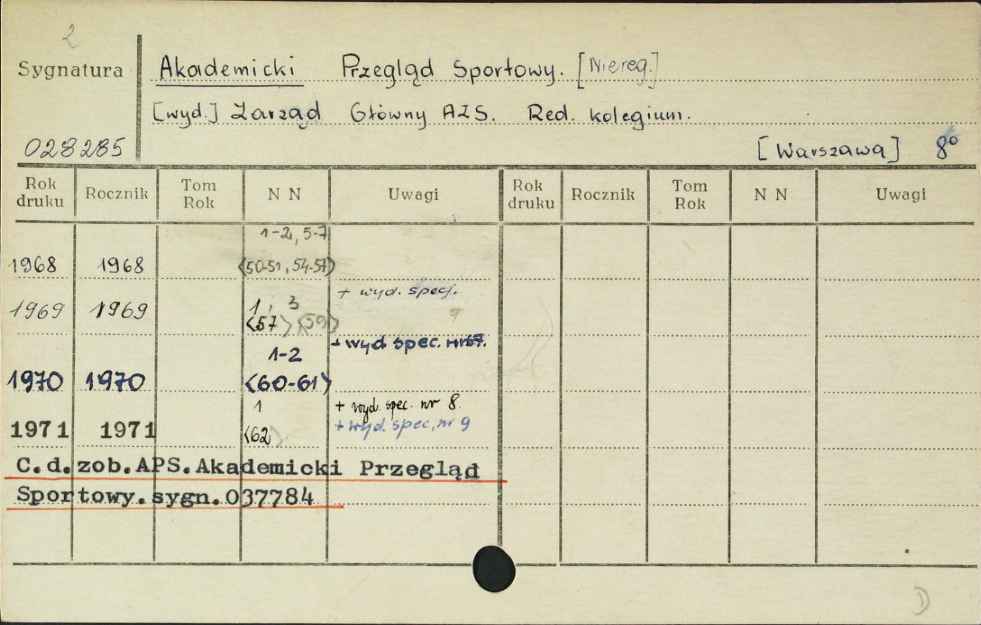 2
Sygnatura
Akademicki Przegląd Sportowy. [Niereg.]
[wyd.] Zarząd Główny AZS. Red. kolegium.
028285
[Warszawa] 8°
Rok druku Rocznik Tom Rok N N Uwagi Rok druku Rocznik Tom Rok N N Uwagi
1-2, 5-7
1968 1968 <50-51, 54-57>
+ wyd. specj.
1969 1969 1, 3
<57> <59>
+ wyd spec.
1-2
1970 1970 <60-61>
1 + wyd. spec. nr 8.
1971 1971 <62> + wyd. spec. nr 9
C.d. zob. APS. Akademicki Przegląd
Sportowy. sygn. 037784